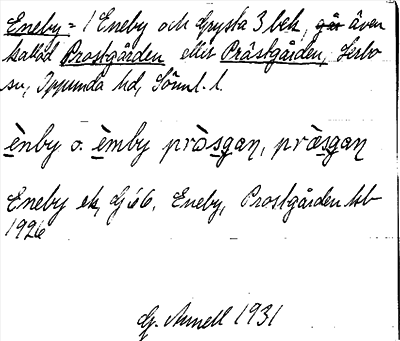 Eneby = 1 Eneby och Grysta 3 bek, går även
kallad Prostgården eller Prästgården, Lerbo
sn, Oppunda hd, Sörml. l.
ènby o. èmby pràsgan, præ̀sgan
Eneby ek, G 66. Eneby, Prostgården kb
1926
G. Annell 1931